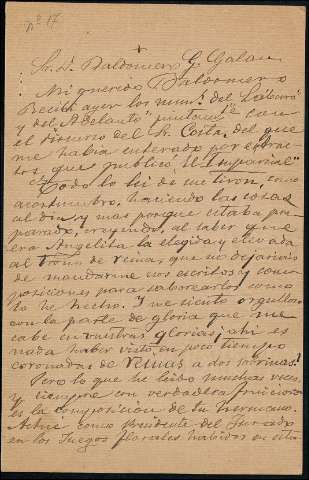 nº 17
Sr. Dn. Baldomero G. Galan
Mi querido Baldomero
Recibí ayer los num.s del Lábaro
y del Adelanto juntamte con
el discurso del Sr. Costa, del que
me había enterado por extrac-
tos que publicó El Imparcial.
Todo lo leí de un tirón, como
acostumbro, haciendo las cosas
al día y mas porque estaba pre-
parado, creyendo, al saber que
era Angelita la elegida y elevada
al trono de reina, que no dejariais
de mandarme sus escritos y com-
posiciones para saborearlos como
lo he hecho. Y me siento orgulloso
con la parte de gloria que me
cabe en vuestras glorias; ahí es
nada haber visto en poco tiempo
coronadas de Reinas a dos
Pero lo que he leido muchas veces,
y siempre con verdadera fruición
es la composición de tu hermano.
Actué como Presidente del Jurado
en los Juegos florales habidos en esta